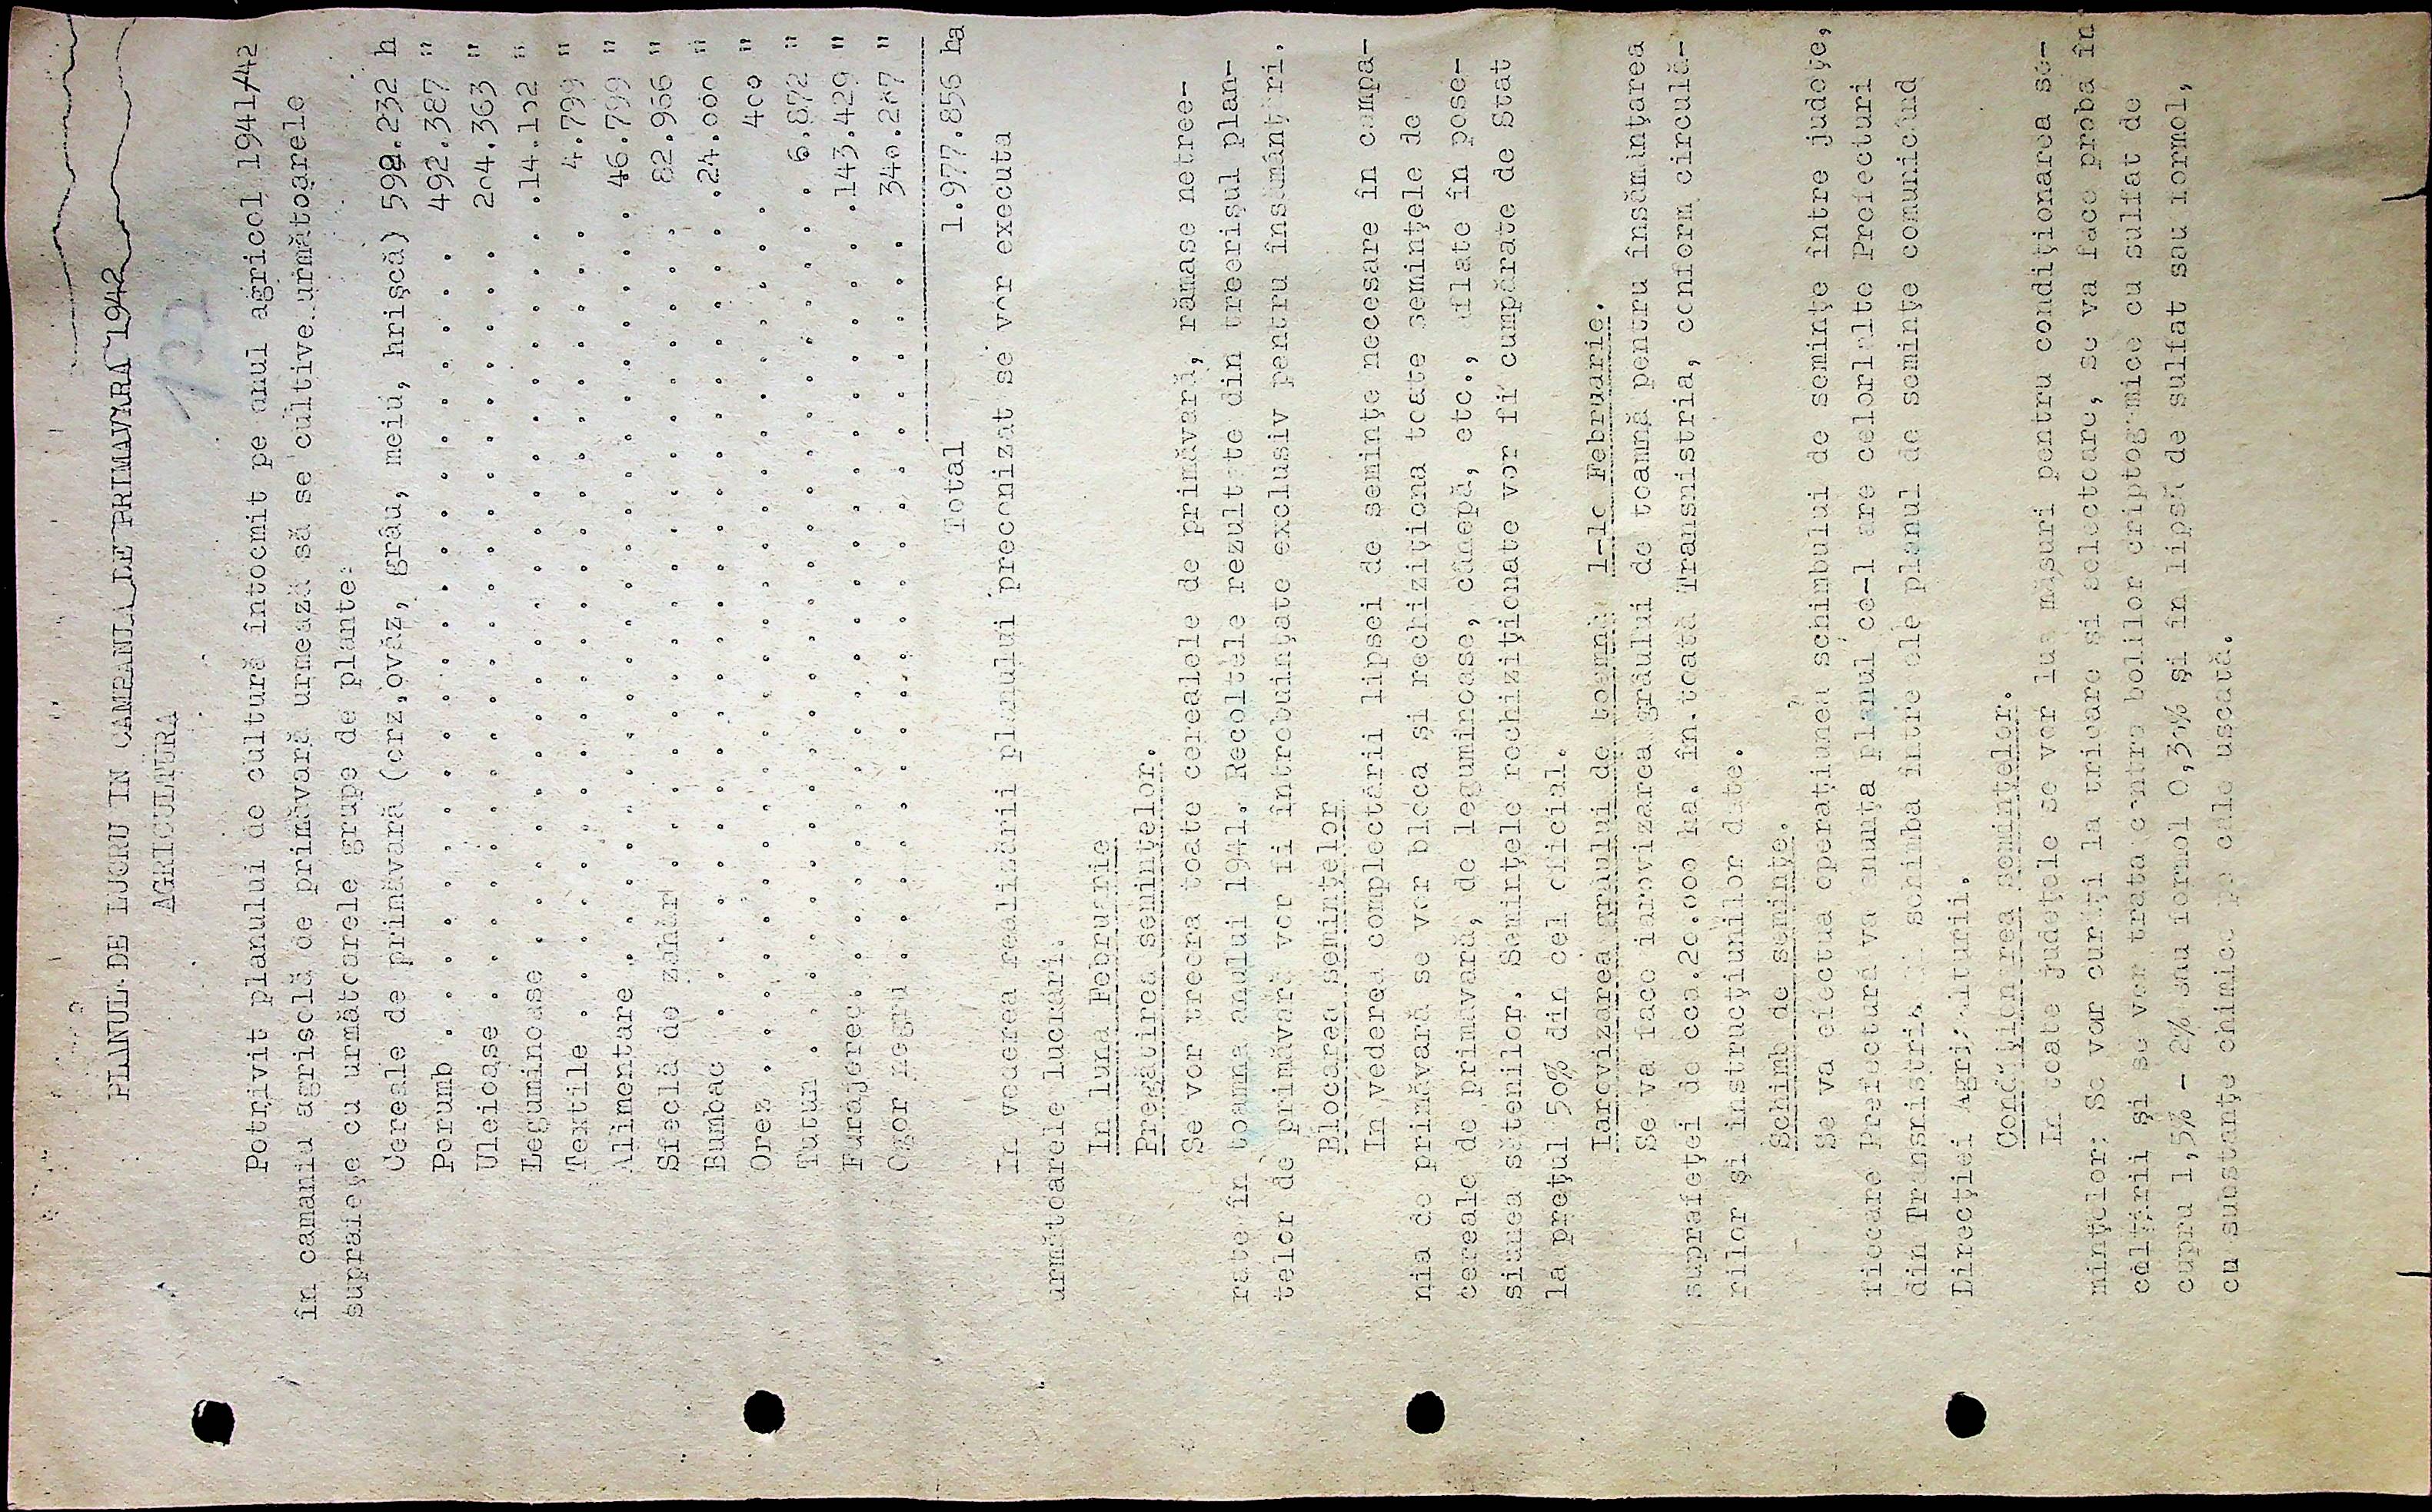 PLANUL DE LUCRU IN CAMPANIA DE PRIMAVARA 1942
AGRICULTURA
Potrivit planului de cultură întocmit pe anul agricol 1941/42
în camania agrisolă de primăvară urmează să se cultive următoarele
suprafețe cu următoarele grupe de plante:
Cereale de primăvară (orz,ovăz, grâu, meiu, hrişcă) 598.232 h
Porumb . . . . . . . . . . . . . . . . . . 492.387 "
Uleioase . . . . . . . . . . . . . . . . . 204.363 "
Leguminoase . . . . . . . . . . . . . . . .14.102 "
Textile . . . . . . . . . . . . . . . . . 4.799 "
Alimentare . . . . . . . . . . . . . . . . 46.799 "
Sfeclă de zahăr . . . . . . . . . . . . . 82.966 "
Bumbac . . . . . . . . . . . . . . . . . .24.000 "
Orez . . . . . . . . . . . . . . . . . . 400 "
Tutun . . . . . . . . . . . . . . . . . . 6.872 "
Furajere . . . . . . . . . . . . . . . . .143.429 "
Ogor negru . . . . . . . . . . . . . . . 340.287 "
Total 1.977.856 ha
In vederea realizării planului preconizat se vor executa
următoarele lucrări.
In luna Februarie
Pregătirea semințelor.
Se vor treera toate cerealele de primăvară, rămase netree-
rate în toamna anului 1941. Recoltele rezultate din treerişul plan-
telor de primăvară vor fi întrebuințate exclusiv pentru însămânțări.
Blocarea semințelor
In vederea complectării lipsei de semințe necesare în campa-
nia de primăvară se vor bloca şi rechiziționa toate semințele de
cereale de primăvară, de leguminoase, cânepă, etc., aflate în pose-
siunea sătenilor. Semințele rechiziționate vor fi cumpărate de Stat
la prețul 50% din cel oficial.
Iarovizarea grâului de toamnă 1-10 Februarie.
Se va face iarovizarea grâului de toamnă pentru însămânțarea
suprafeței de cca.20.000 ha. în toată Transnistria, conform circulă-
rilor şi instrucțiunilor date.
Schimb de semințe.
Se va efectua operațiunea schimbului de semințe între județe,
fiecare Prefectură va anunța planul ce-l are celorlalte Prefecturi
din Transnistria schimba între ele planul de semințe comunicând
Direcției Agriculturii.
Condiționarea semințelor.
In toate județele se vor lua măsuri pentru condiționarea se-
mințelor: Se vor curăți la trioare şi selectoare, se va face proba în
colțirii şi se vor trata contra bolilor criptogamice cu sulfat de
cupru 1,5% - 2% sau formol 0,30% şi în lipsă de sulfat sau formol,
cu substanțe chimice pe cale uscată.